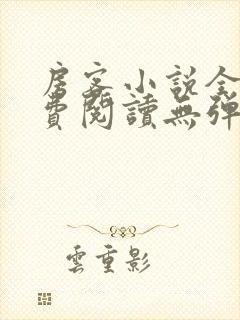 房客小說全
費閱讀無彈
雲重影